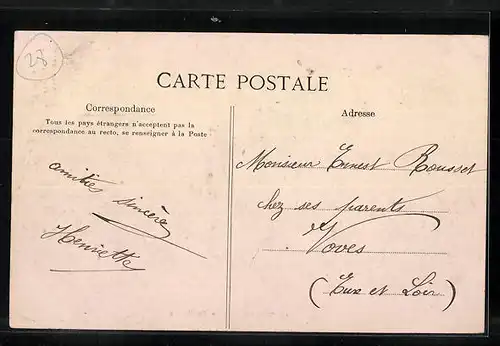 28
CARTE POSTALE
Correspondance
Tous les pays étrangers n'acceptent pas la
correspondance au recto, se renseigner à la Poste
Adresse
amitiés sincère
Henriette
Monsieur Ernest Rousset
chez ses parents
Voves
(Eure et Loir)